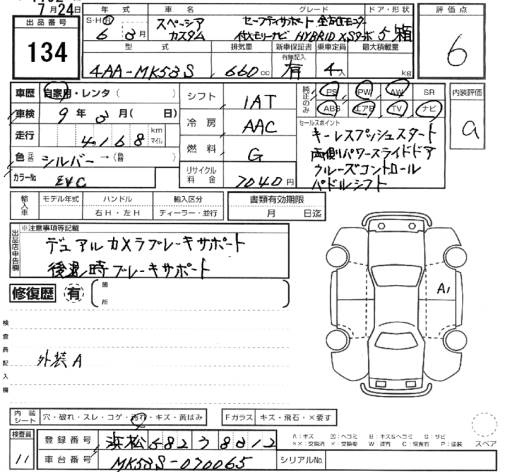 7月24日
出品番号
134
年式 車名 グレード ドア・形状
S・H 6年3月 スペーシア カスタム セーフティサポート 全方位モニター付メモリーナビ HYBRID XSターボ 5 箱
型式 排気量 新車保証書 乗車定員 最大積載量
4AA-MK53S 660cc 有 4人 kg
評価点
6
車歴 自家用・レンタ
車検 9年3月(日)
走行 4,168 km マイル
色 シルバー→(替)
カラーNo.
シフト IAT
冷房 AAC
燃料 G
リサイクル料金 7040円
純正のみ PS PW AW SR
ABS エアB TV ナビ
内装評価
a
セールスポイント
キーレスプッシュスタート
両側パワースライドドア
クルーズコントロール
パドルシフト
輸入車 モデル年式 ハンドル 輸入区分 書類有効期限
右H・左H ディーラー・並行 月 日迄
出品店申告欄
※注意事項等記載
デュアルカメラブレーキサポート
後退時ブレーキサポート
修復歴 有 箇所
A1
検査員記入欄
外装A
内装シート 穴・破れ・スレ・コゲ・汚れ・キズ・黄ばみ
Fガラス キズ・飛石・×要す
スペア
検査員
11
登録番号 浜松 582
車台番号 MK53S-070065
シリアルNo.